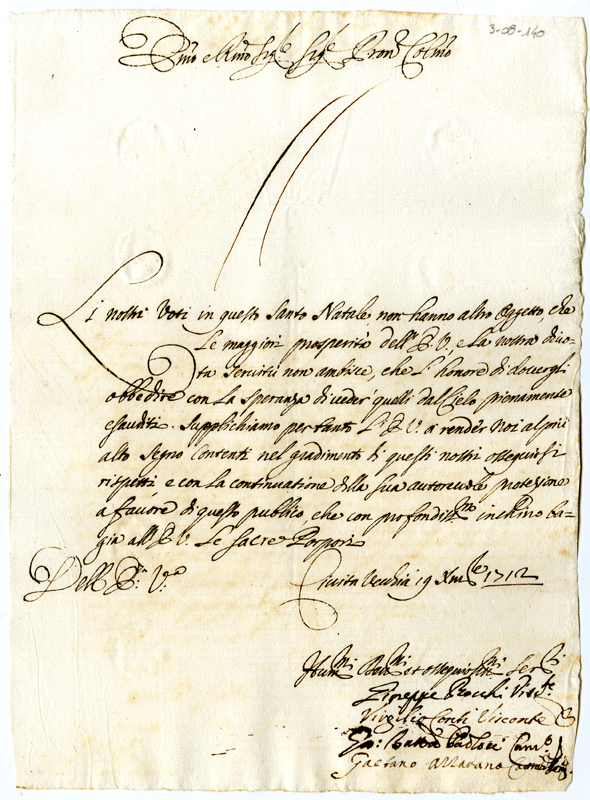 3-08-140
Emo e Rmo Sigre Sigre Pron Colmo
Li nostri Voti in questo Santo Natale non hanno altro Oggetto, che
le maggiori prosperità dell'E. V., e la nostra divo-
ta Servitù non ambisce, che l'honore di doverli
obbedire con la Speranza di veder quelli dal Cielo pienamente
esauditi. Supplichiamo per tanto l'E. V. a render Noi al più
alto Segno Contenti nel gradimento di questi nostri ossequiosi
rispetti, e con la continuatione della sua autoreuole protezione
a favore di questo publico, che con profondissmo inchino ba-
gia all'E. V. le Sacre Porpore
Dell'E. V.a
Civita Vecchia 19 Xmbre 1712
Hummi Devmi et ossequiosmi Seri
Giuseppe
Virgilio Conti Visconte
Gio: Batta
Gaetano